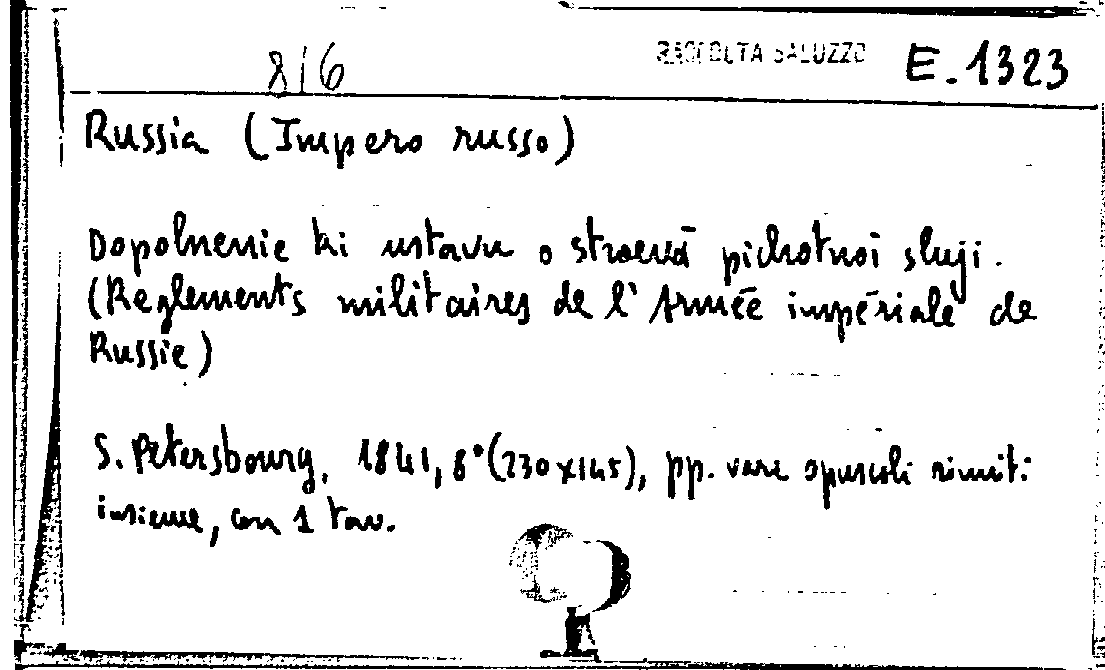 8/6 RACCOLTA SALUZZO E. 1323
Russia (Impero russo)
Dopolnenie ki ustavu o stroevā pichotnoi sluji.
(Reglements militaires de l'Armée impériale de
Russie)
S. Petersbourg, 1841, 8° (230x145), pp. varie opuscoli riuniti
insieme, con 1 tav.